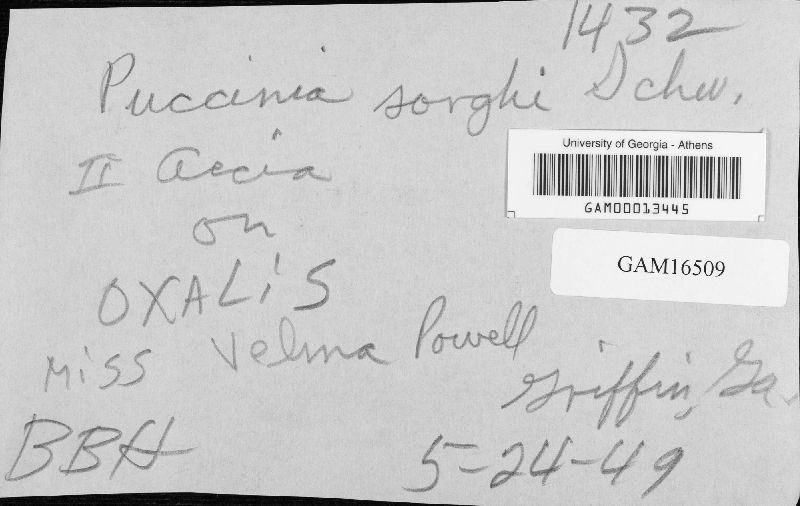 1432
Puccinia sorghi Schw.
II Aecia
on
OXALIS
Miss Velma Powell
Griffin, Ga.
BBH
5-24-49
University of Georgia - Athens
GAM00013445
GAM16509